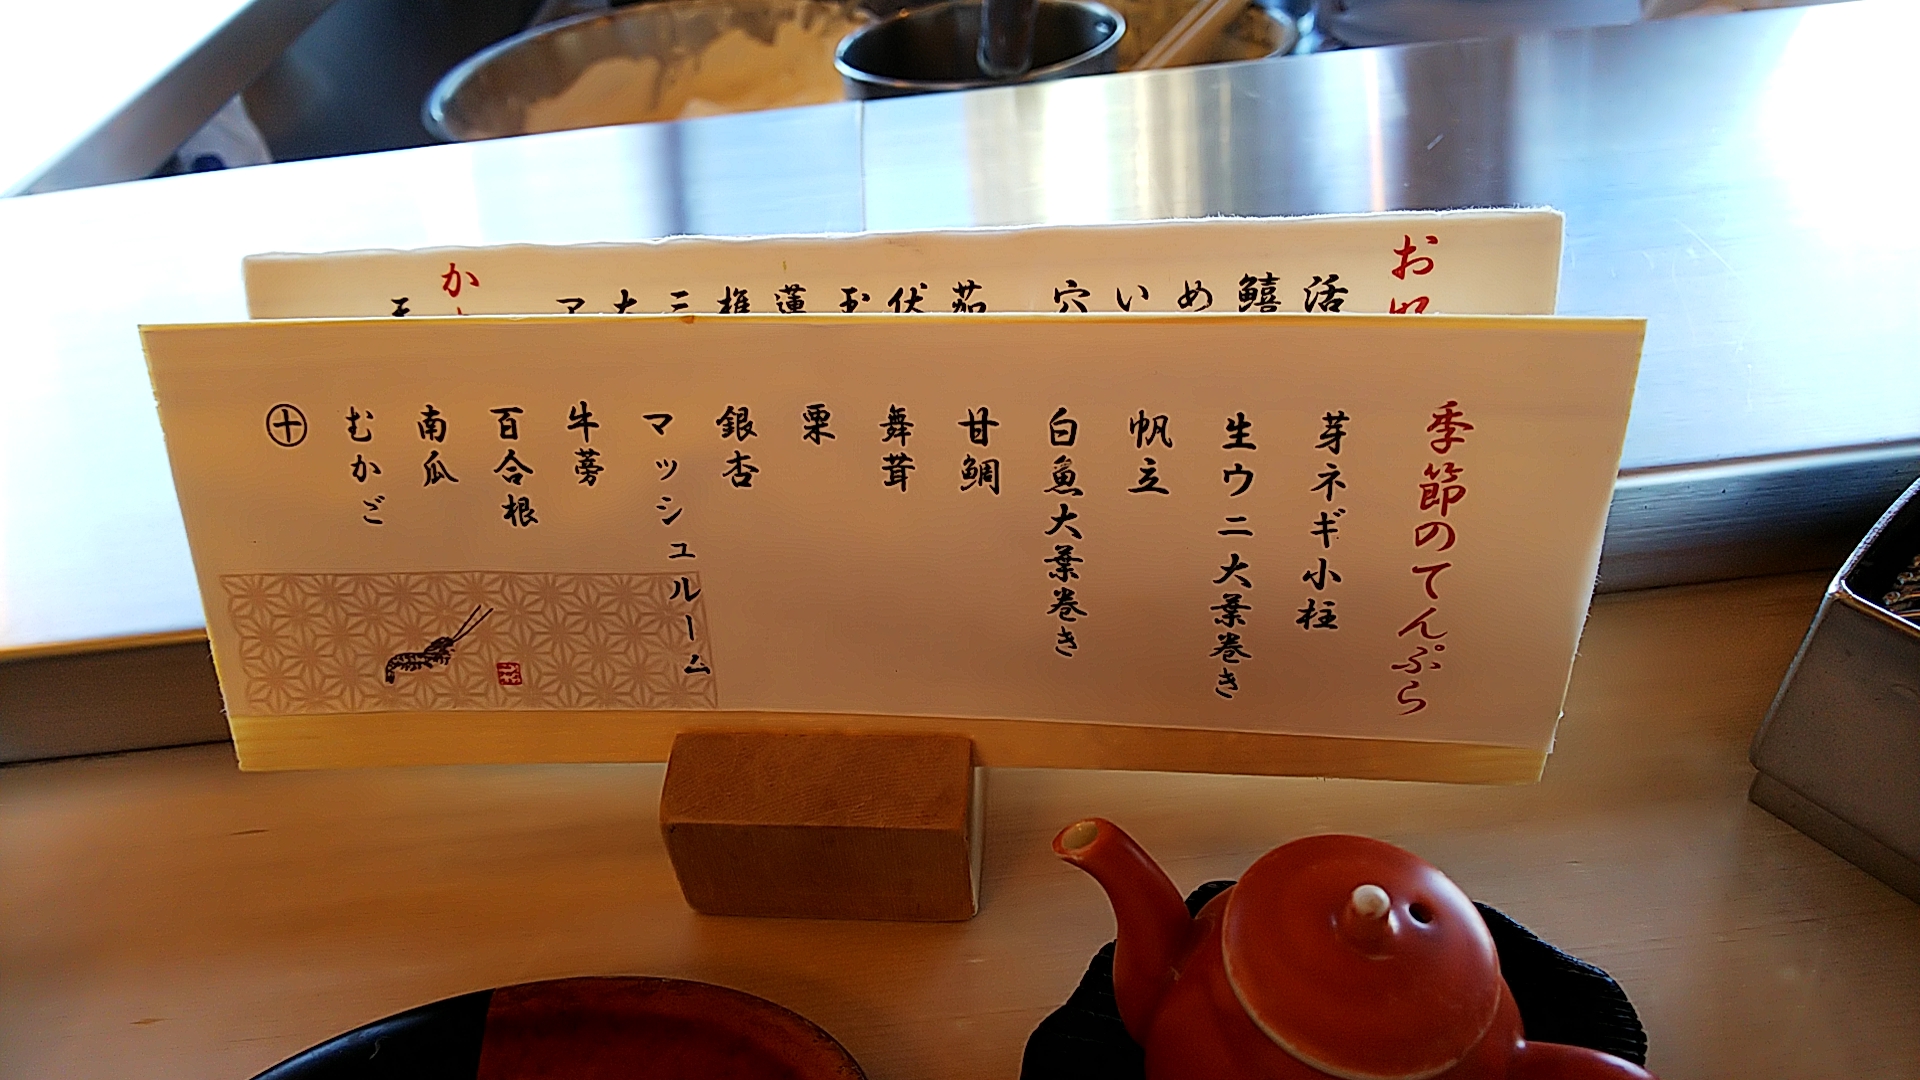 季節のてんぷら
芽ネギ小柱
生ウニ大葉巻き
帆立
白魚大葉巻き
甘鯛
舞茸
栗
銀杏
マッシュルーム
牛蒡
百合根
南瓜
むかご
㊉
お
活
鱚
め
い
穴
茄
伏
玉
蓮
椎
三
大
ア
か